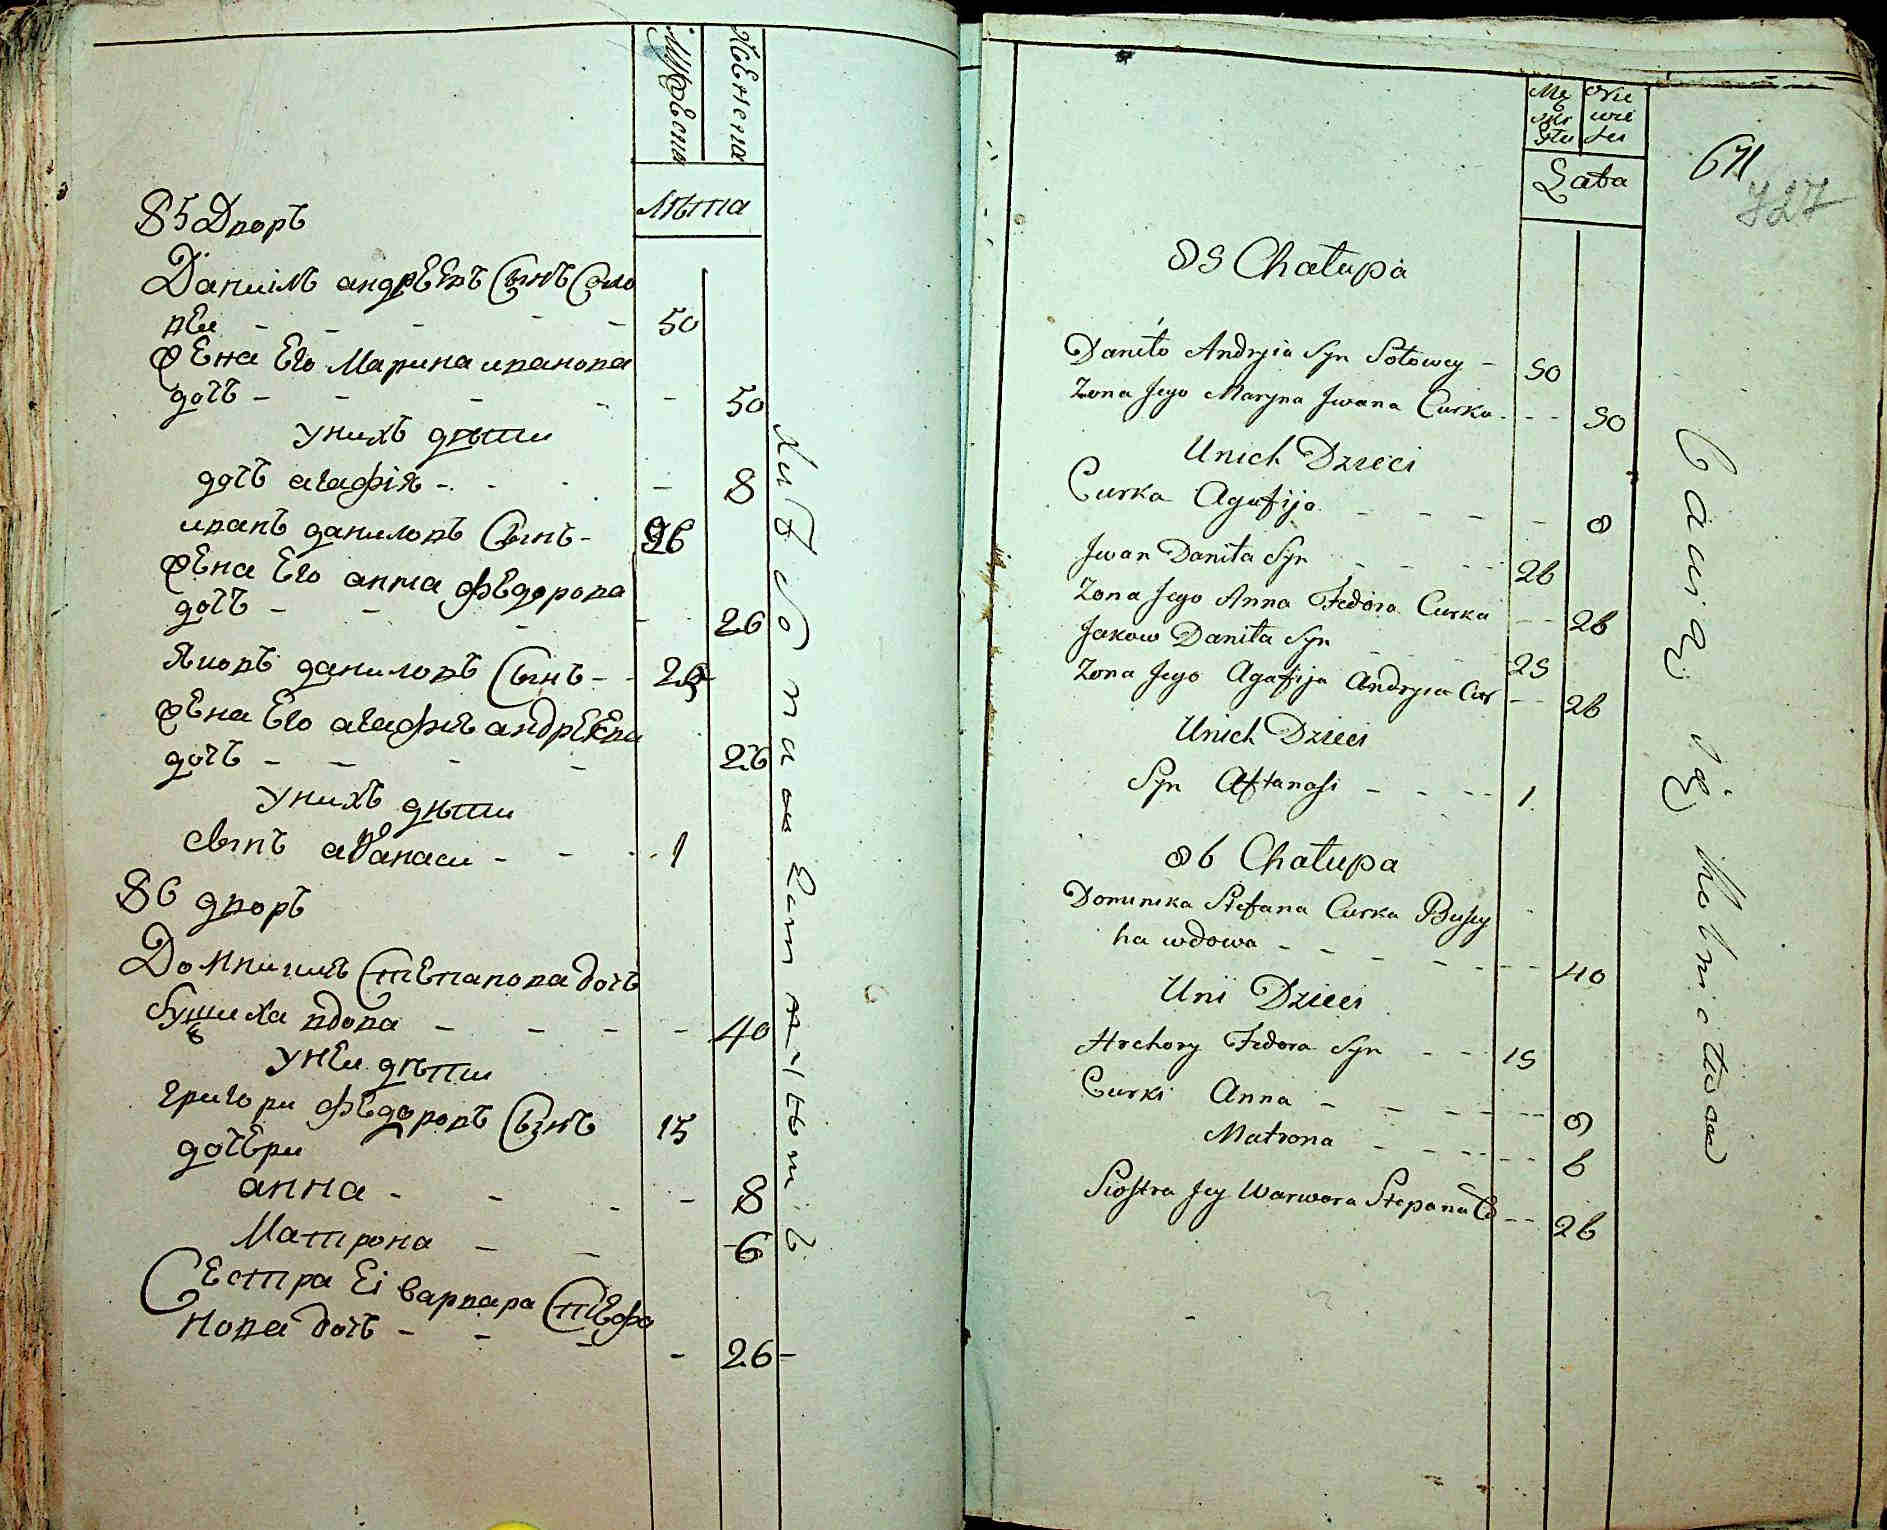 Мужеска
Женска
Лѣта
85 Дворъ
Даниилъ андрѣевъ Сынъ Соло
вei - - - - - 50
жена Его Марина иванова
дочь - - - - - 50
Унихъ дѣти
дочь агафiя - - - - 8
иванъ даниловъ Сынъ - 26
жена Его анна федорова
дочь - - - - 26
Яковъ даниловъ Сынъ - - 25
жена Его агафия андрѣева
дочь - - - - 26
Унихъ дѣти
сынъ афанаси - - - 1
86 дворъ
Домникия Степанова дочь
бушиха вдова - - - - 40
Унеи дѣти
григори федоровъ Сынъ 15
дочери
анна - - - - 8
Матрона - - 6
Сестра Еi варвара Стефа
нова дочь - - - - 26 -
Męskiej
Niewie
Lata
671
727
85 Chałupa
Daniło Andryia Syn Sołowey - 50
Zona Jego Maryna Jwana Curka - - - 50
Unich Dzieci
Curka Agafija - - - - - 8
Jwan Daniła Syn - - - - 26
Zona Jego Anna Fedora Curka - - 26
Jakow Daniła Syn - - - - 25
Zona Jego Agafija Andryia Cur - - 26
Unich Dzieci
Syn Aftanasi - - - - 1
86 Chałupa
Dominika Stefana Curka Buszy
ha wdowa - - - - - - - 40
Uni Dzieci
Hrehory Fedora Syn - - 15
Curki Anna - - - - - - 8
Matrona - - - - - - 6
Siostra Jey Warwara Stepana Co - - 26